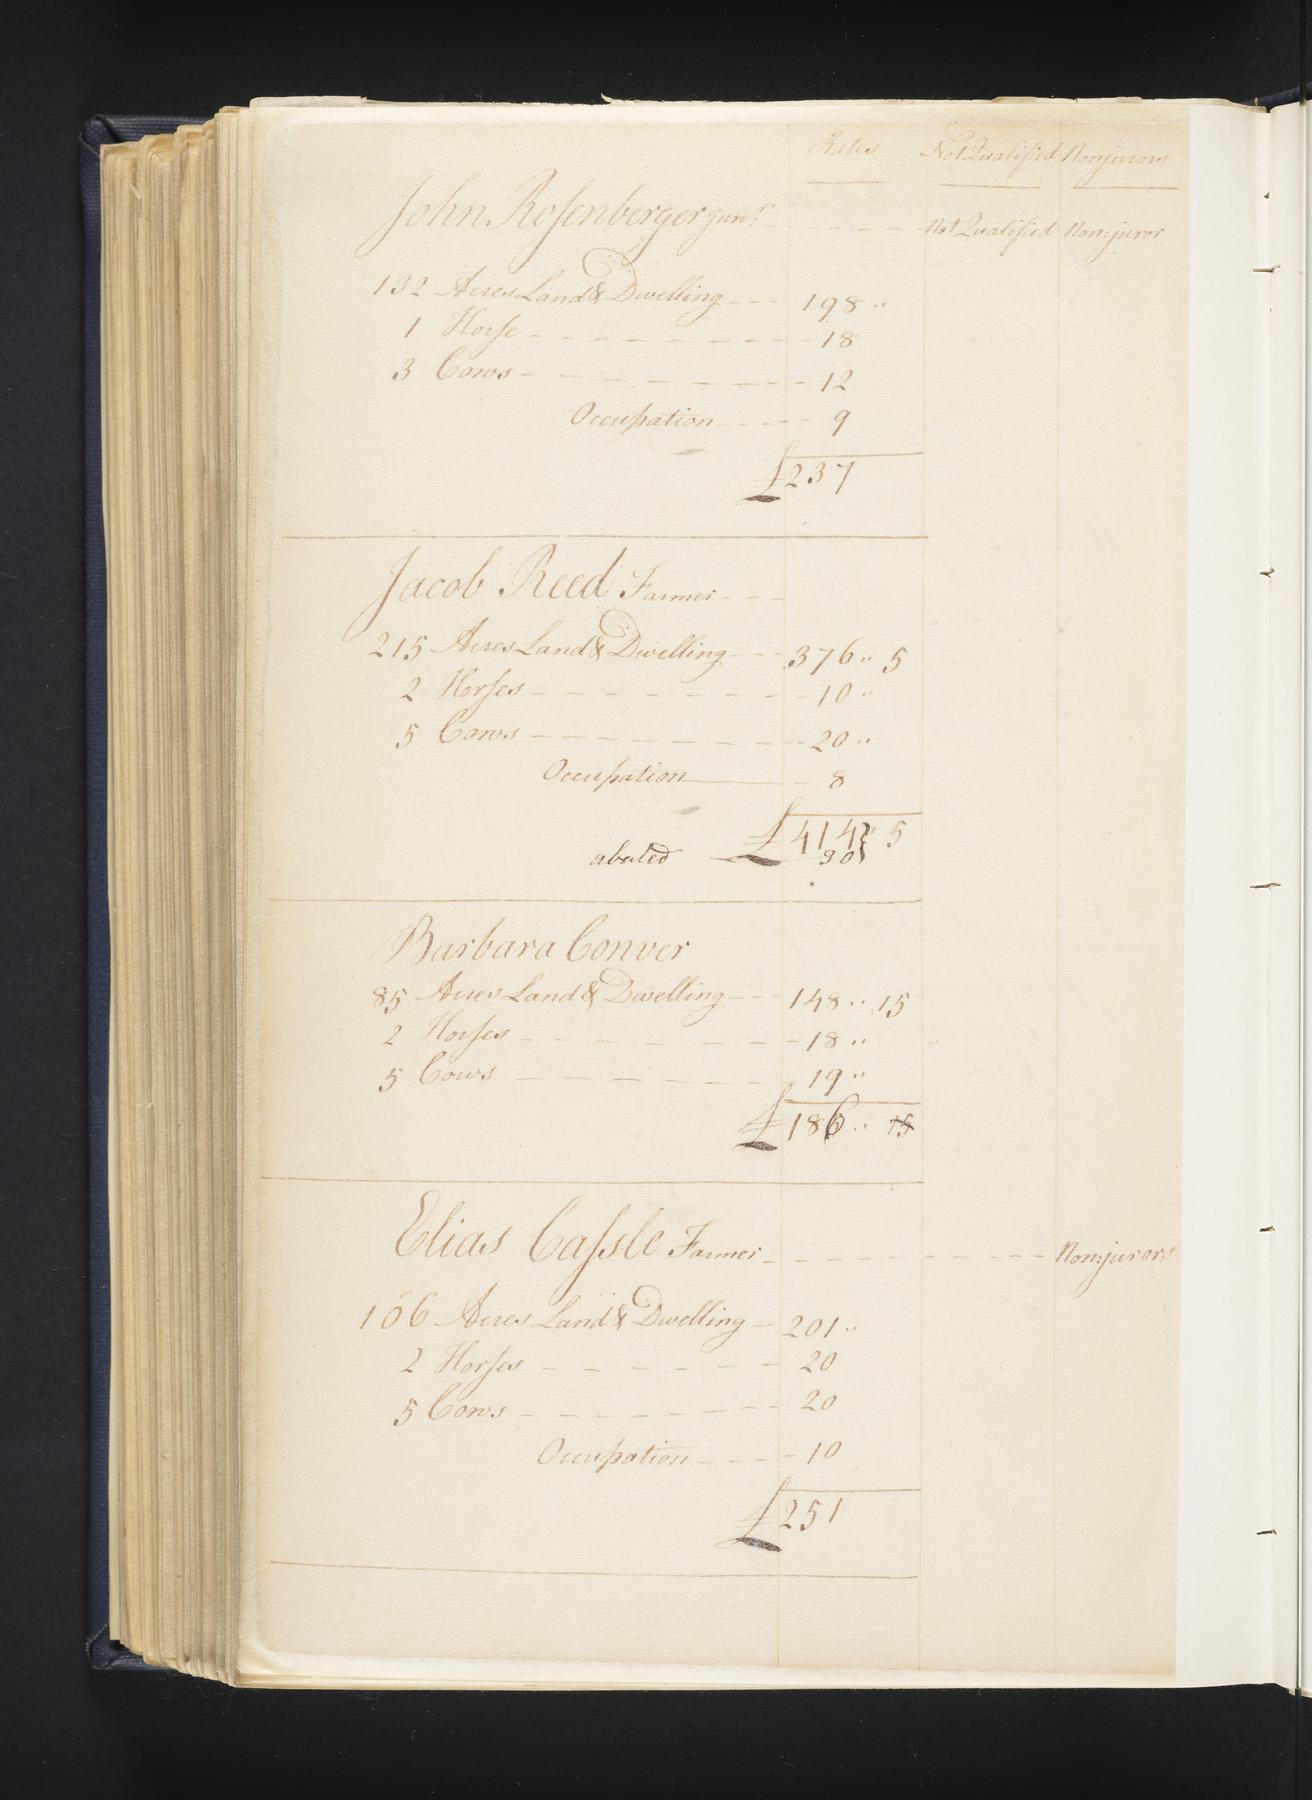 Rates Not Qualified Nonjurors
John Roſenberger junr. Not Qualified Non:juror
132 Acres Land & Dwelling 198 ..
1 Horſe 18
3 Cows 12
Occupation 9
£237
Jacob Reed Farmer
215 Acres Land & Dwelling 376 .. 5
2 Horſes 10 ..
5 Cows 20 ..
Occupation 8
£414 .. 5
abated 30
Barbara Conver
85 Acres Land & Dwelling 148 .. 15
2 Horſes 18 ..
5 Cows 19 ..
£186 .. 15
Elias Caſsle Farmer Non:jurors
106 Acres Land & Dwelling 201 ..
2 Horſes 20
5 Cows 20
Occupation 10
£251